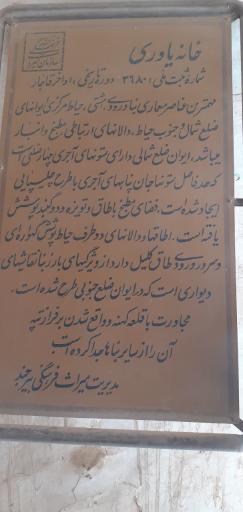 خانه یاوری
شماره ثبت ملی: ۳۶۸۰ دوره تاریخی: اواخر قاجار
مهمترین عناصر معماری بنا ورودی، هشتی، حیاط مرکزی ایوانهای
ضلع شمال و جنوب حیاط، دالانهای ارتباطی، مطبخ و انبار
میباشد، ایوان ضلع شمالی دارای ستونهای آجری چهار ضلعی است
که حد فاصل ستونها جان پناههای آجری با طرح چلیپایی
ایجاد شده است. فضای مطبخ با طاق و تویزه دو گنبد پوشش
یافته است. اطاقها و دالانهای دو طرف حیاط پوشش گنبدی
و سر در ورودی طاق کلیل دارد از ویژگیهای بارز بنا نقاشیهای
دیواری است که در ایوان ضلع جنوبی طرح شده است.
مجاورت با قلعه کهنه و واقع شدن بر فراز تپه
آن را از سایر بناها جدا کرده است
مدیریت میراث فرهنگی بیرجند